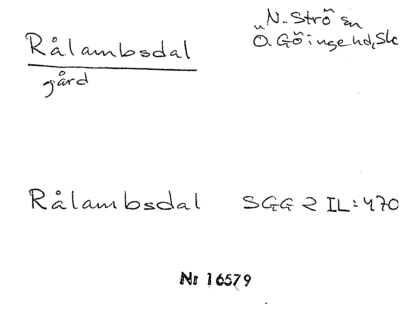 Rålambsdal
gård
N. Strö sn
Ö. Göinge hd, Sk
Rålambsdal SGG 2 IL: 470
Nr 16579